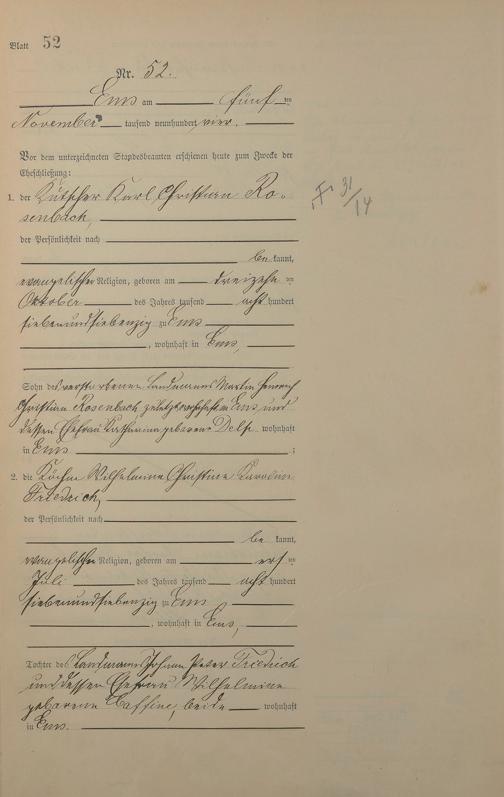 Blatt 52
Nr. 52.
Ems am fünf ten
November tausend neunhundert vier.
Vor dem unterzeichneten Standesbeamten erschienen heute zum Zwecke der
Eheschließung:
1. der Kutscher Karl Christian Ro-
senbach,
der Persönlichkeit nach
be kannt,
evangelischer Religion, geboren am dreizehn ten
Oktober des Jahres tausend acht hundert
siebenundsiebenzig zu Ems
, wohnhaft in Ems,
Sohn des verstorbenen Landmanns Martin Heinrich
Christian Rosenbach zuletzt wohnhaft in Ems und
dessen Ehefrau Katharina geborene wohnhaft
in Ems ;
2. die Köchin Wilhelmine Christine Karoline
Friedrich,
der Persönlichkeit nach
be kannt,
evangelischer Religion, geboren am ers ten
Juli des Jahres tausend acht hundert
siebenundsiebenzig zu Ems
, wohnhaft in Ems,
Tochter des Landmanns Johann Peter Friedrich
und dessen Ehefrau Wilhelmine
geborene beide wohnhaft
in Ems.
F. 31/14